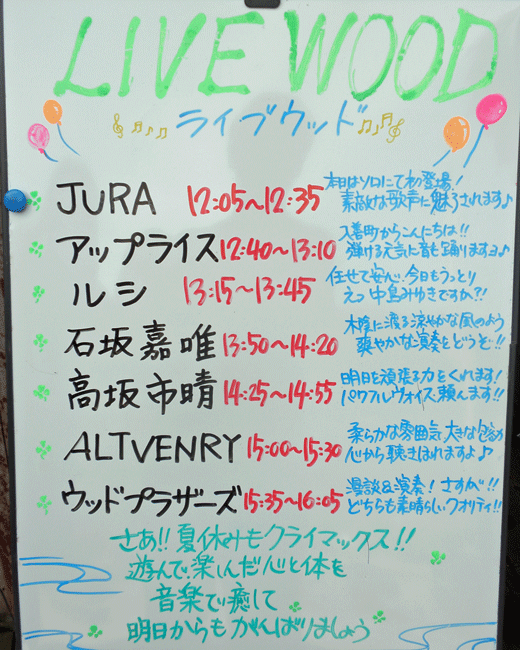 LIVE WOOD
ライブウッド
JURA 12:05～12:35 本日はソロにて初登場!
素敵な歌声に魅了されます♪
アップライス 12:40～13:10 入善町からこんにちは!!
弾ける元気に音も踊りますヨ♪
ルシ 13:15～13:45 任せて安心、今日もうっとり
えっ中島みゆきですか?!
石坂嘉唯 13:50～14:20 木陰に渡る涼やかな風のよう
爽やかな演奏をどうぞ!!
高坂市晴 14:25～14:55 明日を頑張る力をくれます!
パワフルヴォイス、頼んます!!
ALTVENRY 15:00～15:30 柔らかな雰囲気、大きな包容力
心から聴きほれますよ♪
ウッドブラザーズ 15:35～16:05 漫談&演奏! さすが!!
どちらも素晴らしいクオリティ!!
さあ!! 夏休みもクライマックス!!
遊んで、楽しんだ心と体を
音楽で癒して
明日からもがんばりましょう